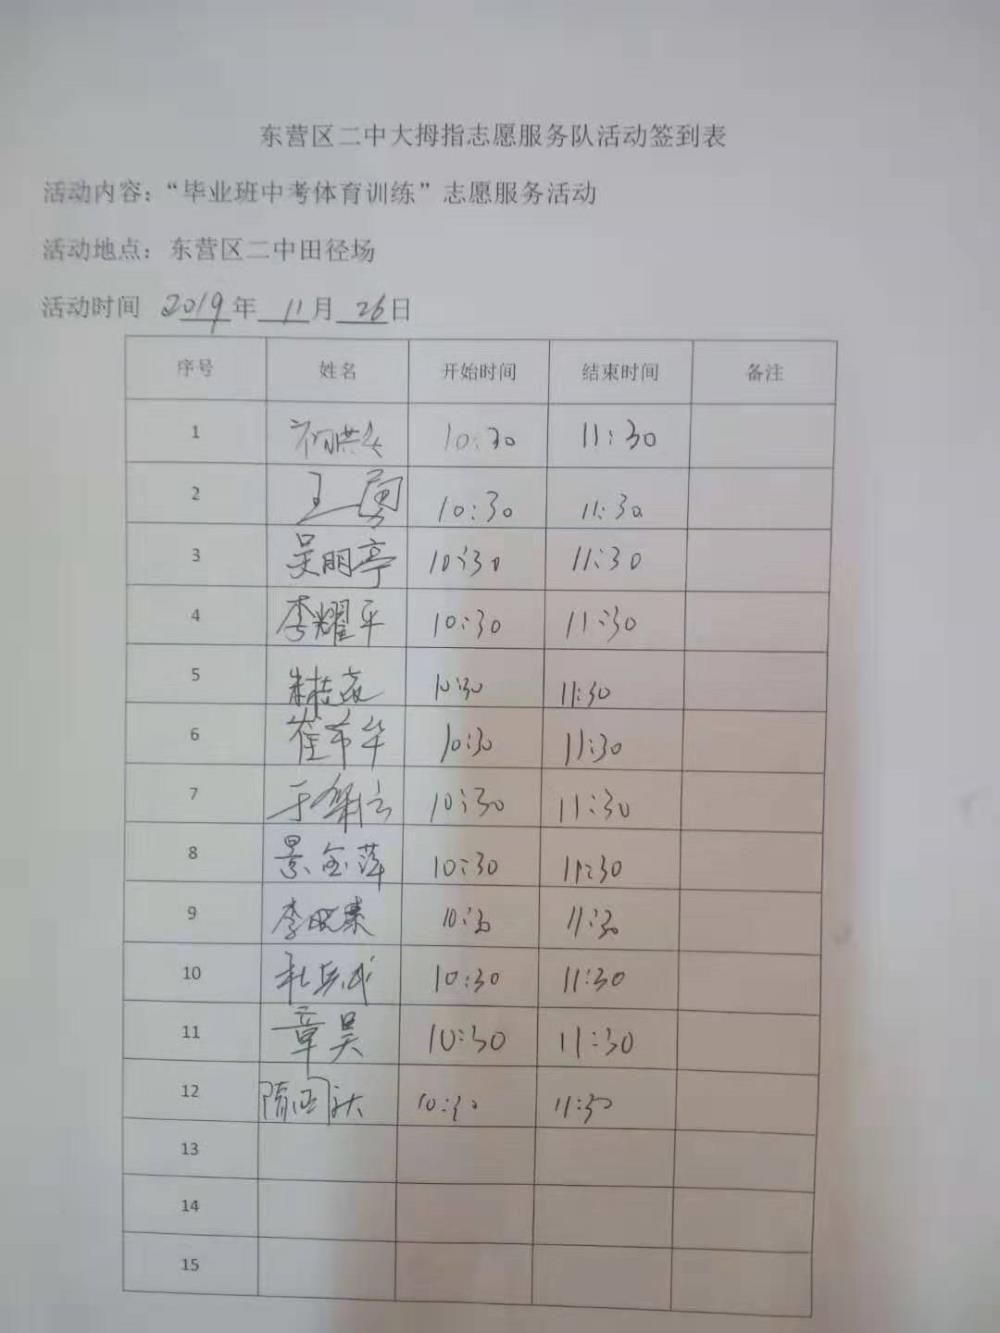 东营区二中大拇指志愿服务队活动签到表
活动内容：“毕业班中考体育训练”志愿服务活动
活动地点：东营区二中田径场
活动时间 2019年 11月 26日
序号 姓名 开始时间 结束时间 备注
1 10:30 11:30
2 王勇 10:30 11:30
3 吴明亭 10:30 11:30
4 李耀平 10:30 11:30
5 10:30 11:30
6 崔希华 10:30 11:30
7 10:30 11:30
8 景金萍 10:30 11:30
9 10:30 11:30
10 10:30 11:30
11 章昊 10:30 11:30
12 10:30 11:30
13
14
15